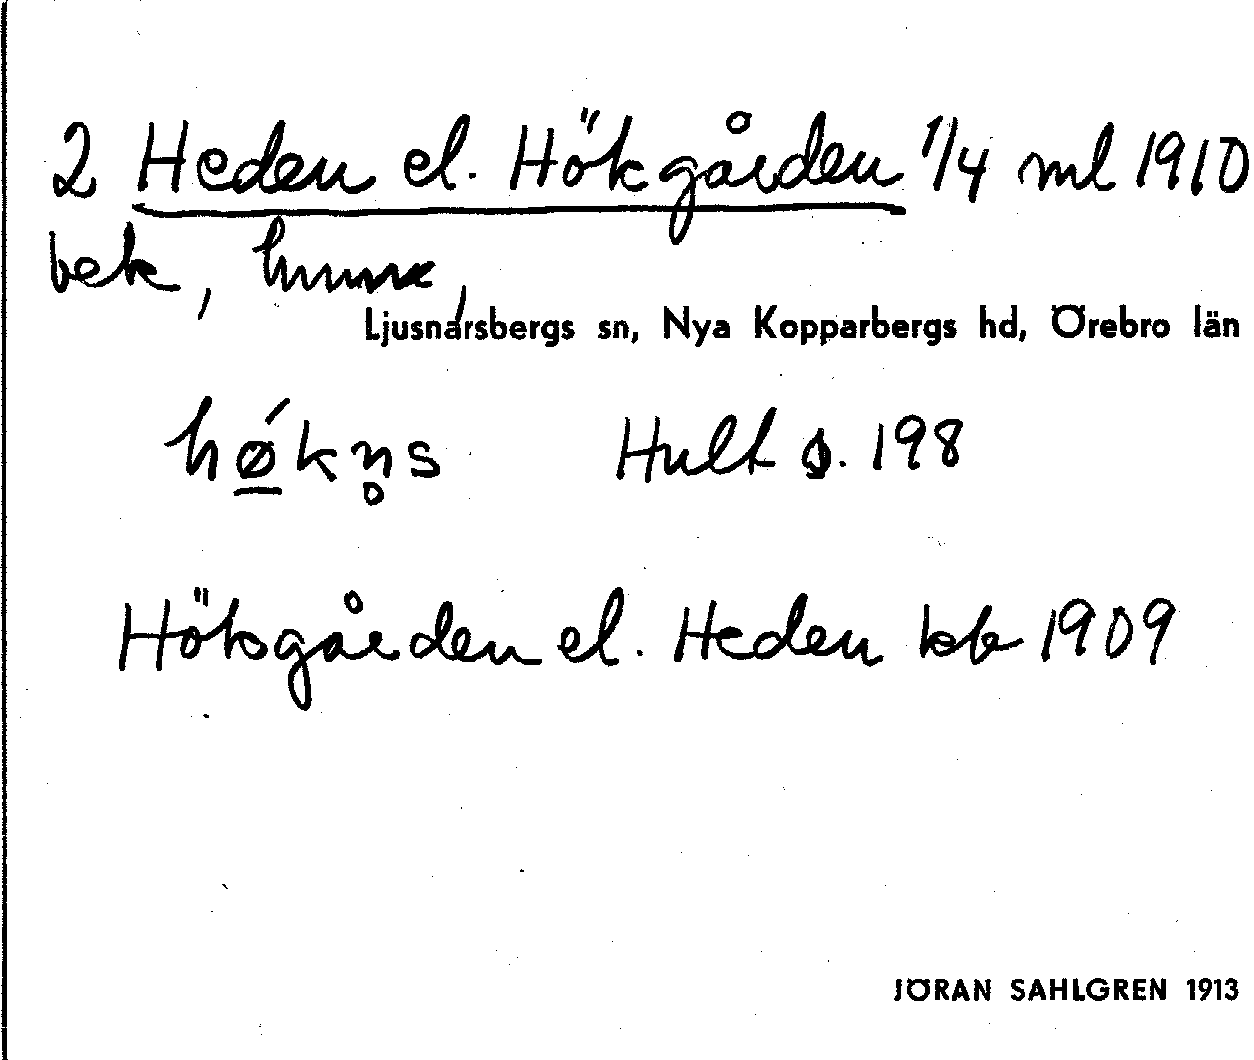 2 Heden el. Hökgården 1/4 ml 1910
bek,
Ljusnarsbergs sn, Nya Kopparbergs hd, Örebro län
hǿ̲kn̥s Hult s. 198
Höksgården el. Heden kb 1909
JÖRAN SAHLGREN 1913